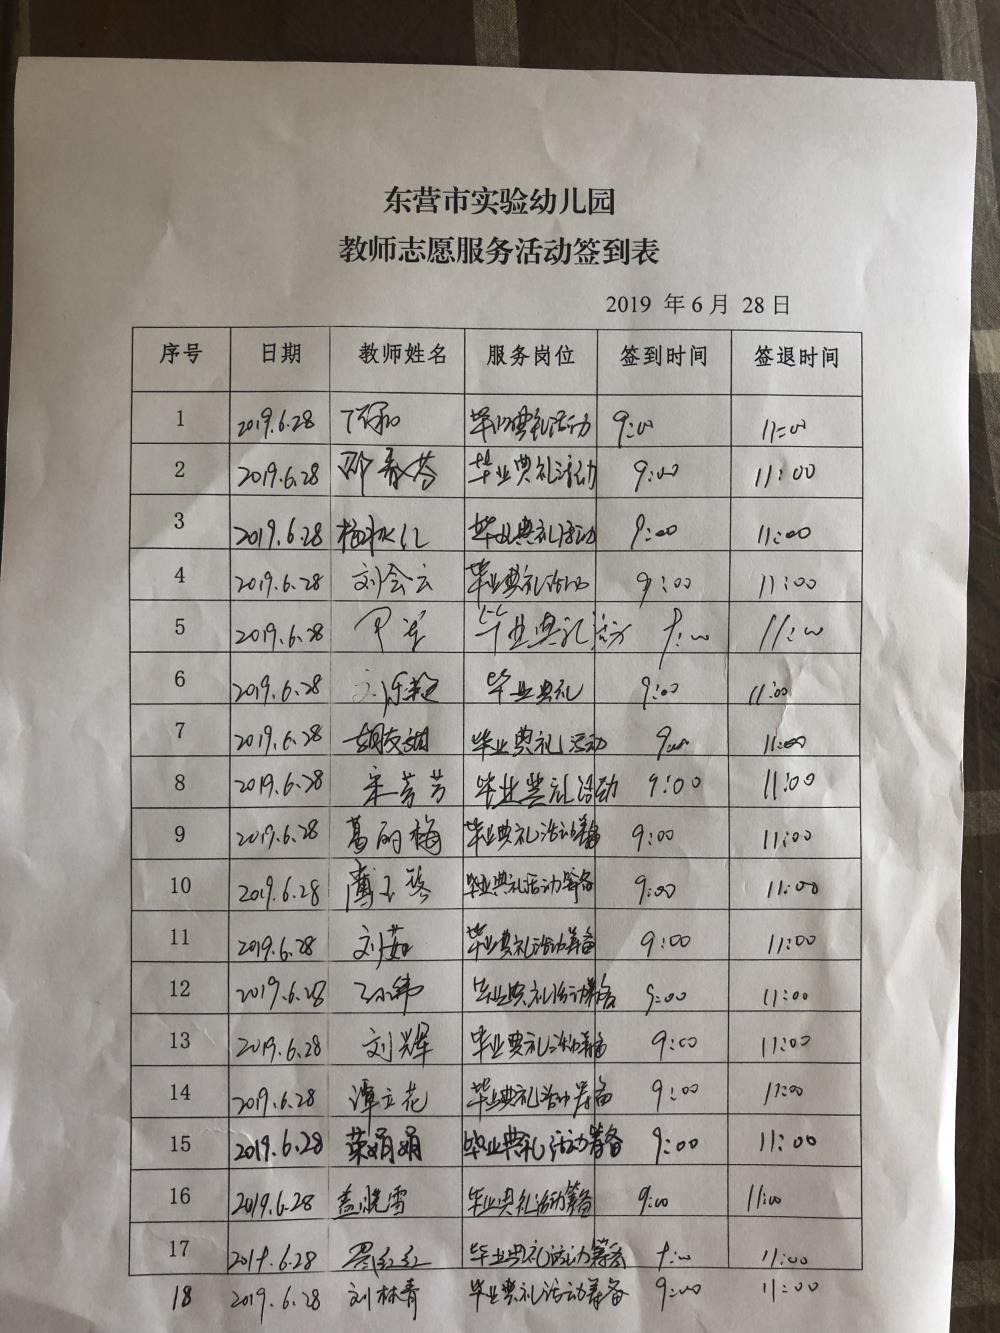 东营市实验幼儿园
教师志愿服务活动签到表
2019 年 6 月 28 日
序号 日期 教师姓名 服务岗位 签到时间 签退时间
1 2019.6.28 毕业典礼活动 9:00 11:00
2 2019.6.28 邵春芬 毕业典礼活动 9:00 11:00
3 2019.6.28 毕业典礼活动 9:00 11:00
4 2019.6.28 刘会云 毕业典礼活动 9:00 11:00
5 2019.6.28 毕业典礼活动 9:00 11:00
6 2019.6.28 毕业典礼 9:00 11:00
7 2019.6.28 毕业典礼活动 9:00 11:00
8 2019.6.28 宋芳芳 毕业典礼活动 9:00 11:00
9 2019.6.28 葛丽梅 毕业典礼活动筹备 9:00 11:00
10 2019.6.28 毕业典礼活动筹备 9:00 11:00
11 2019.6.28 刘茹 毕业典礼活动筹备 9:00 11:00
12 2019.6.28 毕业典礼活动筹备 9:00 11:00
13 2019.6.28 刘辉 毕业典礼活动筹备 9:00 11:00
14 2019.6.28 谭立花 毕业典礼活动筹备 9:00 11:00
15 2019.6.28 荣娟娟 毕业典礼活动筹备 9:00 11:00
16 2019.6.28 盖晓雪 毕业典礼活动筹备 9:00 11:00
17 2019.6.28 周红红 毕业典礼活动筹备 9:00 11:00
18 2019.6.28 刘林青 毕业典礼活动筹备 9:00 11:00